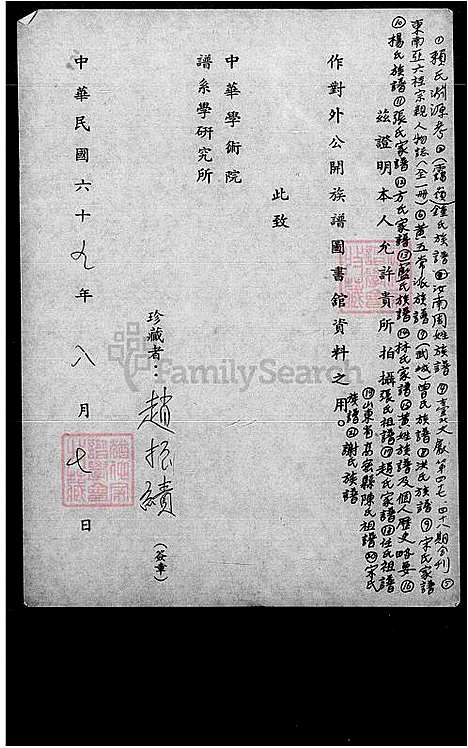 ①賴氏淵源考②(霞嶺)鍾氏族譜③汝南周姓族譜④臺北文獻第四七、四十八期合刊⑤
東南亞六桂宗親人物誌(全一冊)⑥黃五常派族譜⑦(武城)曾氏族譜⑧洪氏族譜⑨宋氏家譜
⑩楊氏族譜⑪張氏家譜⑫方氏家譜⑬藍氏族譜⑭林氏家譜⑮黃姓族譜及個人歷史略要⑯
張氏祖譜⑰趙氏家譜⑱任氏祖譜
⑲山東省高密縣陳氏祖譜⑳宋氏
族譜㉑謝氏族譜
茲證明本人允許貴所拍攝
作對外公開族譜圖書館資料之用。
此致
中華學術院
譜系學研究所
珍藏者：趙振績(簽章)
中華民國六十九年八月七日
FamilySearch